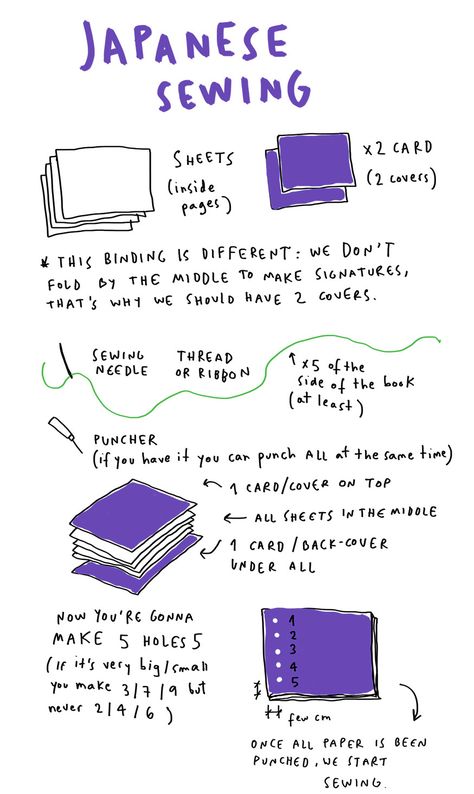 JAPANESE
SEWING
SHEETS
(inside
pages)
x2 CARD
(2 covers)
* THIS BINDING IS DIFFERENT: WE DON'T
FOLD BY THE MIDDLE TO MAKE SIGNATURES,
THAT'S WHY WE SHOULD HAVE 2 COVERS.
SEWING
NEEDLE
THREAD
OR RIBBON
x5 of the
side of the book
(at least)
PUNCHER
(if you have it you can punch ALL at the same time)
1 CARD/COVER ON TOP
ALL SHEETS IN THE MIDDLE
1 CARD/BACK-COVER
UNDER ALL
NOW YOU'RE GONNA
MAKE 5 HOLES 5
(IF it's very big/small
you make 3/7/9 but
never 2/4/6)
1
2
3
4
5
few cm
ONCE ALL PAPER IS BEEN
PUNCHED, WE START
SEWING.